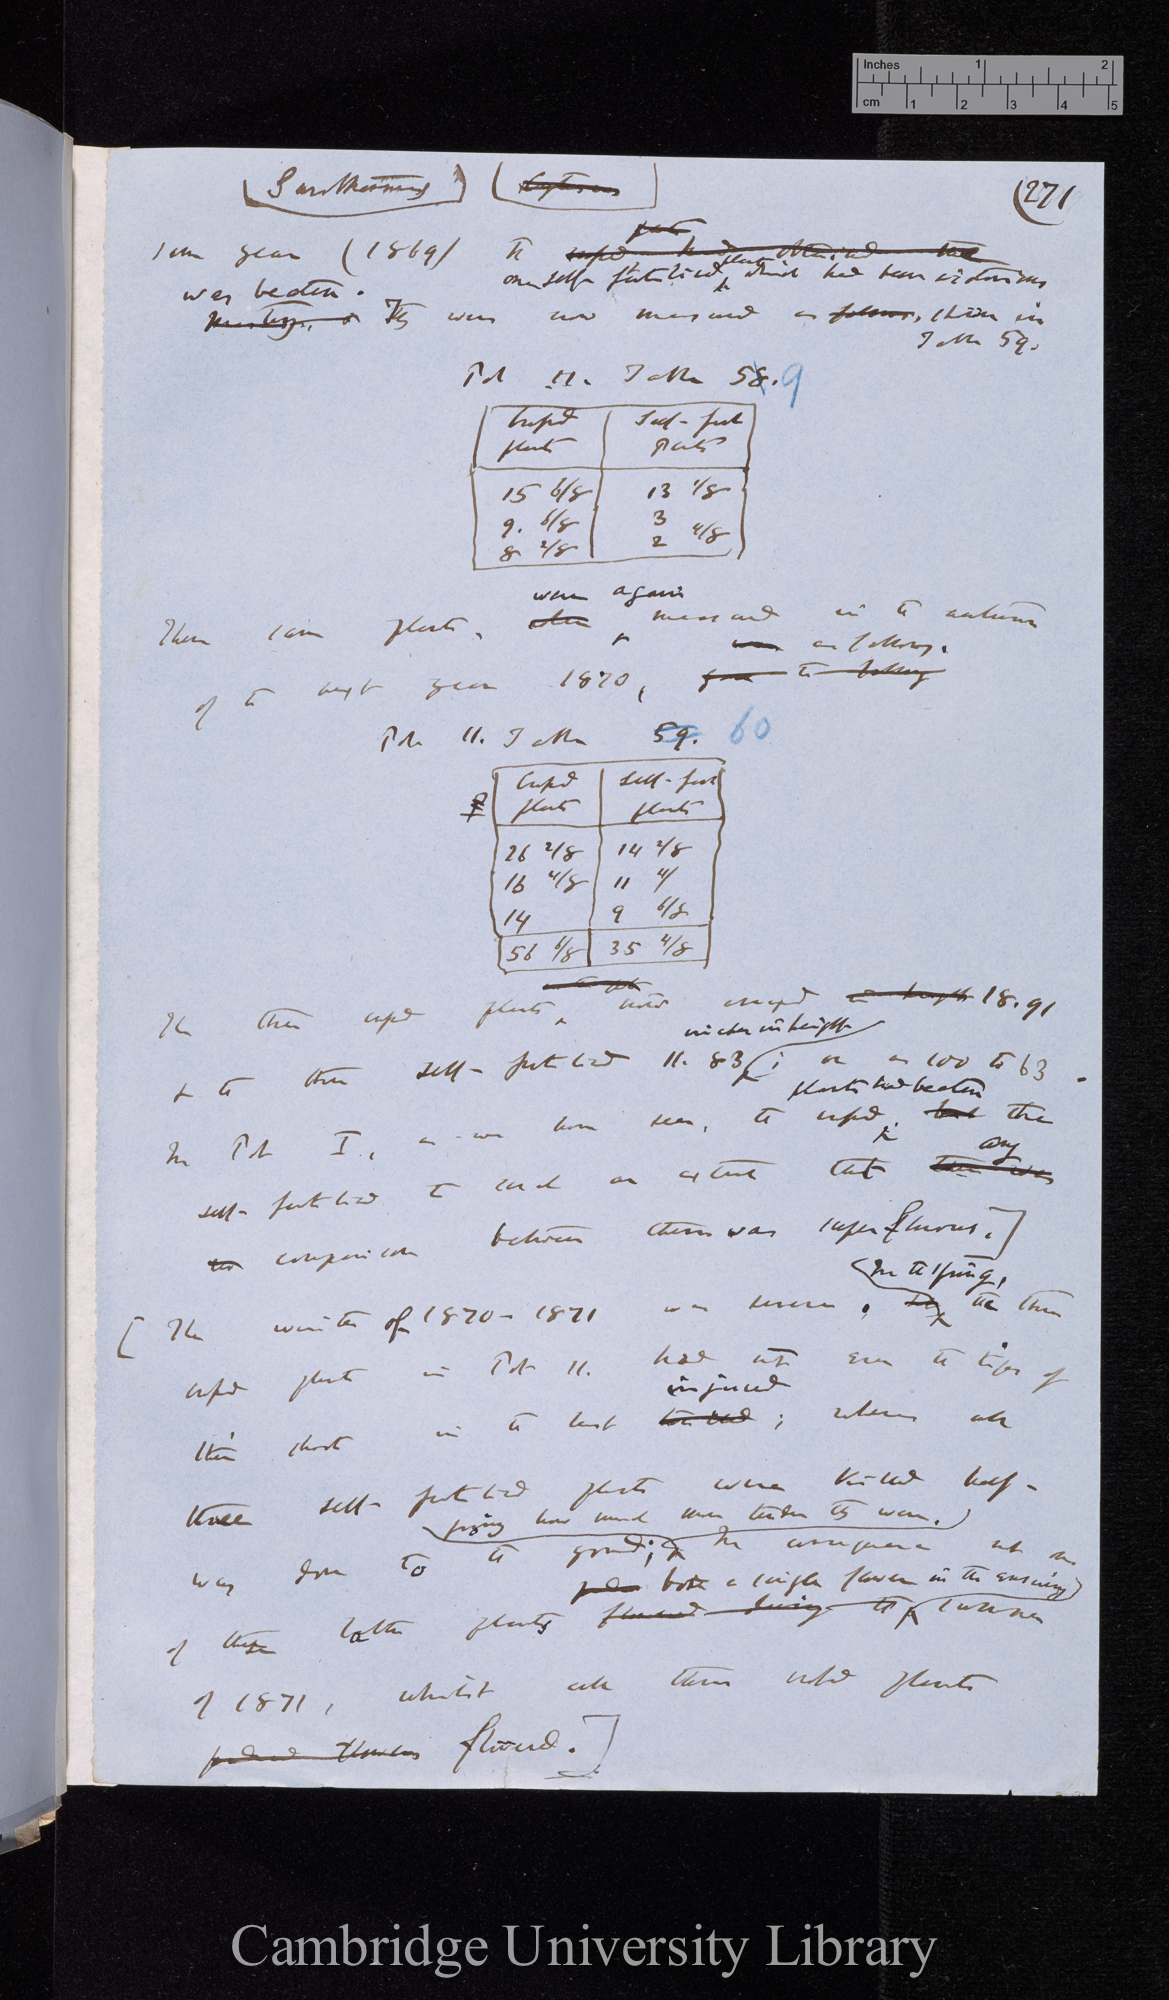 Inches 1 2
cm 1 2 3 4 5
Sarothamnus
Cytisus
(271
same year (1869) the
one self-fertilised plant which had been victorious
was beaten.
They were now measured as follows, shown in
Table 59.
Pot II. Table 58. 9
Crossed Self-fert
plants Plants
15 6/8 13 4/8
9. 6/8 3
8 2/8 2 4/8
were again
These same plants, when measured in the autumn
was as follows.
of the next year 1870, gave the following
Pot II. Table 59. 60
Crossed Self-fert
plants plants
26 2/8 14 2/8
16 4/8 11 4/
14 9 6/8
56 6/8 35 4/8
The three crossed plants now averaged in height 18.91
inches in height
& the three self-fertilised 11.83; or as 100 to 63.
plants had beaten
In Pot I., as we have seen, the crossed but the
any
self-fertilised to such an extent that there was
no comparison between them was superfluous.]
In the spring,
[The winter of 1870-1871 was severe. the three
crossed plants in Pot II. had not even the tips of
injured
their shoots in the least; whereas all
three self-fertilised plants were killed half-
proving how much more tender they were.
way down to the ground; In consequence not one
bore a single flower in the ensuing
of these latter plants flowered during the summer
of 1871, whilst all three crossed plants
produced flowers flowered.]
Cambridge University Library